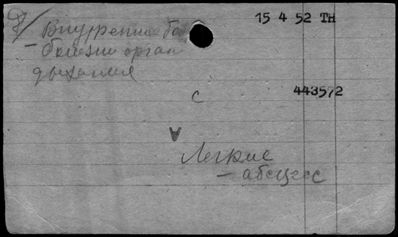 15 4 52 TH
Внутренние бо
— болезни орган
дыхания
443572
с
V
Легкие
— абсцесс